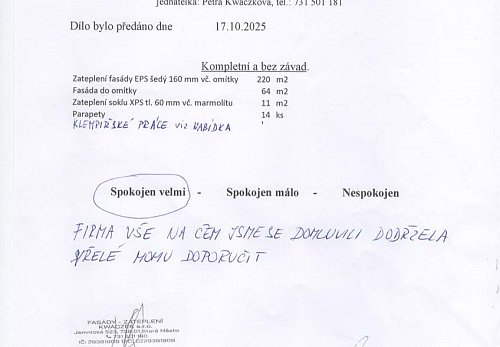 jednatelka: Petra Kwaczková, tel.: 731 501 181
Dílo bylo předáno dne 17.10.2025
Kompletní a bez závad.
Zateplení fasády EPS šedý 160 mm vč. omítky 220 m2
Fasáda do omítky 64 m2
Zateplení soklu XPS tl. 60 mm vč. marmolitu 11 m2
Parapety 14 ks
KLEMPÍŘSKÉ PRÁCE VIZ NABÍDKA
Spokojen velmi - Spokojen málo - Nespokojen
FIRMA VŠE NA ČEM JSME SE DOMLUVILI DODRŽELA
VŘELÉ MOHU DOPORUČIT
FASÁDY - ZATEPLENÍ
KWACZEK s.r.o.
Jamnická 523, 738 01 Staré Město
731 501 180